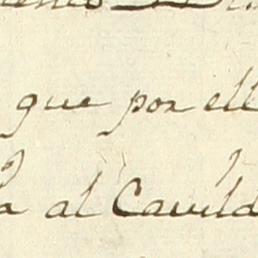 que por ell
al Cavild